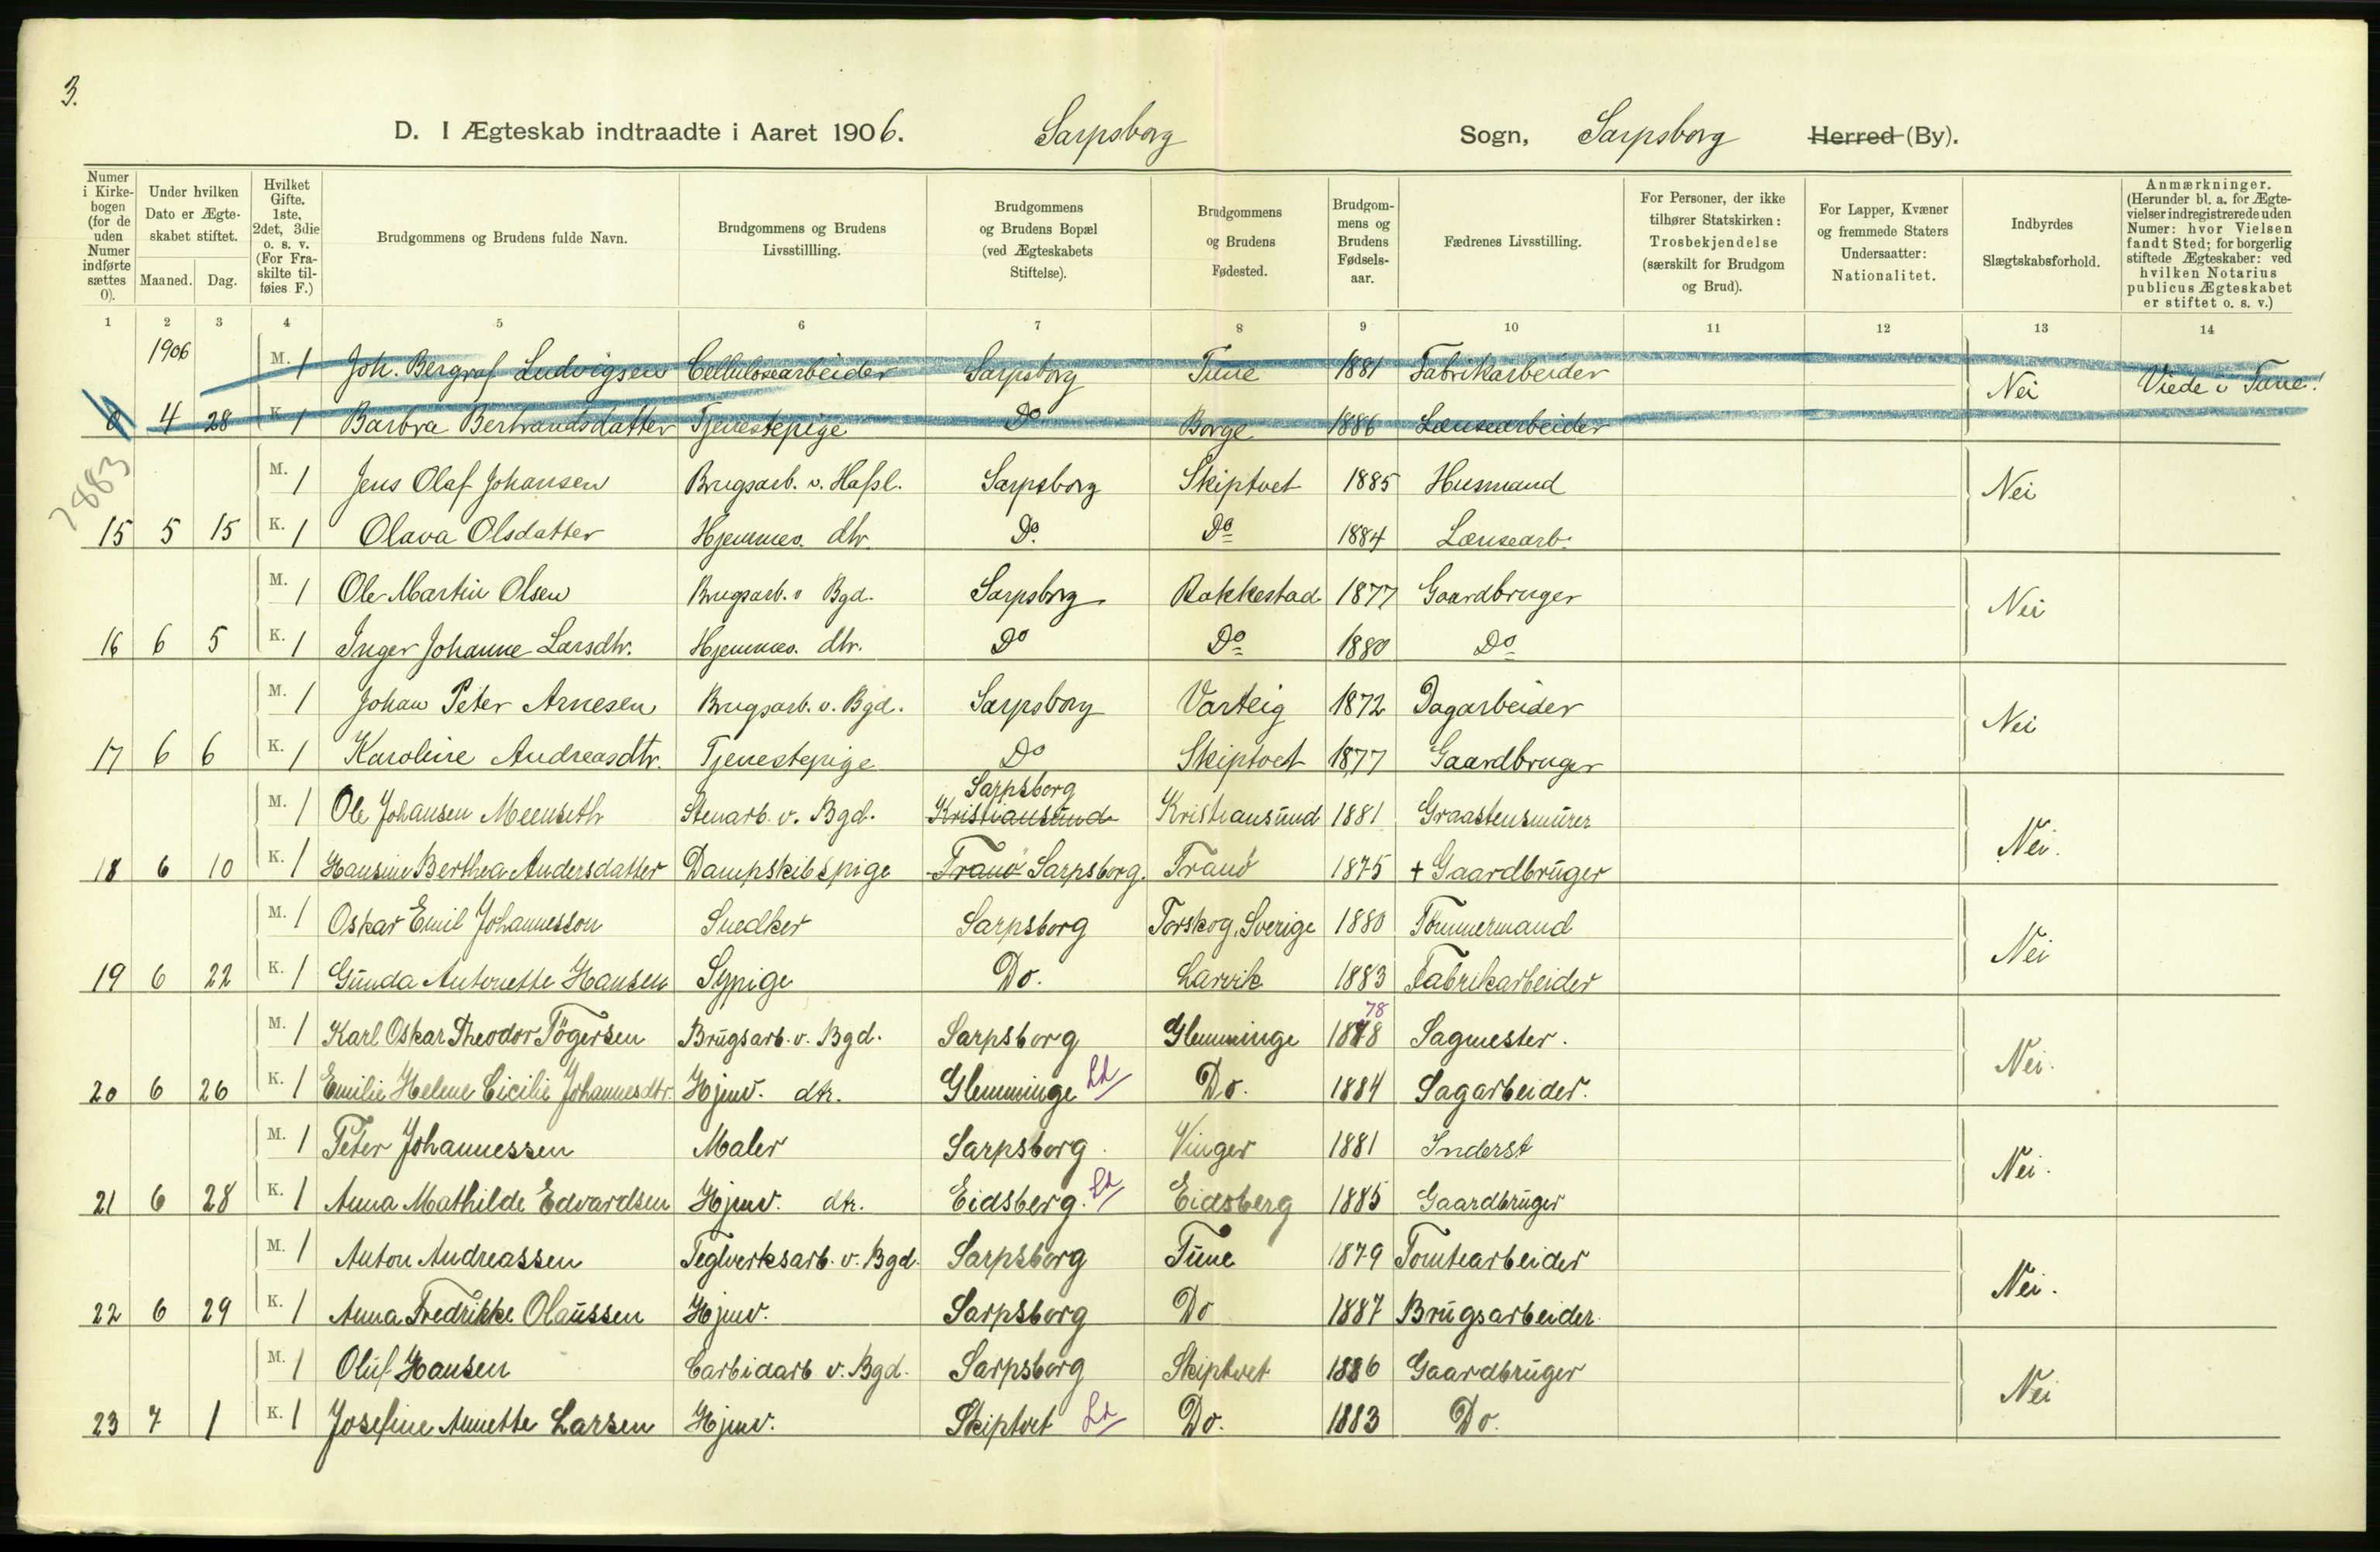 3.
D. I Ægteskab indtraadte i Aaret 1906. Sarpsborg Sogn, Sarpsborg Herred (By).
Numer i Kirkebogen (for de uden Numer indførte sættes 0). Under hvilken Dato er Ægteskabet stiftet. Maaned. Dag. Hvilket Gifte. 1ste, 2det, 3die o. s. v. (For Fraskilte tilføies F.) Brudgommens og Brudens fulde Navn. Brudgommens og Brudens Livsstillling. Brudgommens og Brudens Bopæl (ved Ægteskabets Stiftelse). Brudgommens og Brudens Fødested. Brudgommens og Brudens Fødselsaar. Fædrenes Livsstilling. For Personer, der ikke tilhører Statskirken: Trosbekjendelse (særskilt for Brudgom og Brud). For Lapper, Kvæner og fremmede Staters Undersaatter: Nationalitet. Indbyrdes Slægtskabsforhold. Anmærkninger. (Herunder bl. a. for Ægtevielser indregistrerede uden Numer: hvor Vielsen fandt Sted; for borgerlig stiftede Ægteskaber: ved hvilken Notarius publicus Ægteskabet er stiftet o. s. v.)
1 2 3 4 5 6 7 8 9 10 11 12 13 14
1906 M. 1 Joh. Bergraf Ludvigsen Cellulosearbeider Sarpsborg Tune 1881 Fabrikarbeider Nei Viede i Tune!
0 4 28 K. 1 Barbra Bertrandsdatter Tjenestepige Do Borge 1886 Lænsearbeider
7883
M. 1 Jens Olaf Johansen Brugsarb. v. Hafsl. Sarpsborg Skiptvet 1885 Husmand Nei
15 5 15 K. 1 Olava Olsdatter Hjemmev. dtr. Do. Do 1884 Lænsearb.
M. 1 Ole Martin Olsen Brugsarb. v Bgd. Sarpsborg Rakkestad 1877 Gaardbruger Nei
16 6 5 K. 1 Inger Johanne Larsdtr. Hjemmev. dtr. Do Do 1880 Do
M. 1 Johan Peter Arnesen Brugsarb. v. Bgd. Sarpsborg Varteig 1872 Dagarbeider Nei
17 6 6 K. 1 Karoline Andreasdtr. Tjenestepige Do Skiptvet 1877 Gaardbruger
Sarpsborg
M. 1 Ole Johansen Stenarb. v. Bgd. Kristiansund Kristiansund 1881 Graastensmurer Nei.
18 6 10 K. 1 Hansine Berthea Andersdatter Dampskibspige Tranö Sarpsborg. Tranö 1875 + Gaardbruger
M. 1 Oskar Emil Johannesson Snedker Sarpsborg Torskog, Sverige 1880 Tömmermand Nei
19 6 22 K. 1 Gunda Antonette Hansen Sypige Do. Larvik 1883 Fabrikarbeider
78
M. 1 Karl Oskar Theodor Tögersen Brugsarb. v. Bgd. Sarpsborg Glemminge 1878 Sagmester. Nei.
20 6 26 K. 1 Emilie Helene Cicilie Johannesdtr. Hjmv. dtr. Glemminge Ld Do. 1884 Sagarbeider.
M. 1 Peter Johannessen Maler Sarpsborg Vinger 1881 Inderst Nei.
21 6 28 K. 1 Anna Mathilde Edvardsen Hjmv. dtr. Eidsberg. Ld Eidsberg 1885 Gaardbruger
M. 1 Anton Andreassen Teglverksarb. v. Bgd. Sarpsborg Tune 1879 Tomtearbeider Nei.
22 6 29 K. 1 Anna Fredrikke Olaussen Hjmv. Sarpsborg Do 1887 Brugsarbeider.
M. 1 Oluf Hansen Carbidarb v. Bgd. Sarpsborg Skiptvet 1886 Gaardbruger Nei
23 7 1 K. 1 Josefine Annette Larsen Hjmv. Skiptvet Ld Do. 1883 Do.